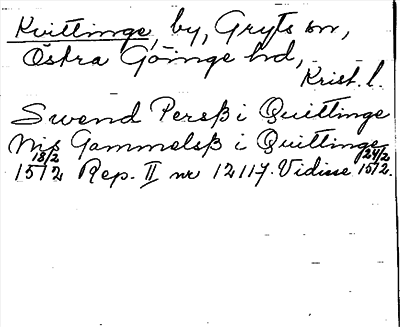 Kvittinge, by, Gryts sn,
Östra Göinge hd,
Krist. l.
Swend Persß i Quittinge
Nis Gammelsß i Quittinge
18/2 1512 Rep. II nr 12117. Vidisse 24/2 1512.